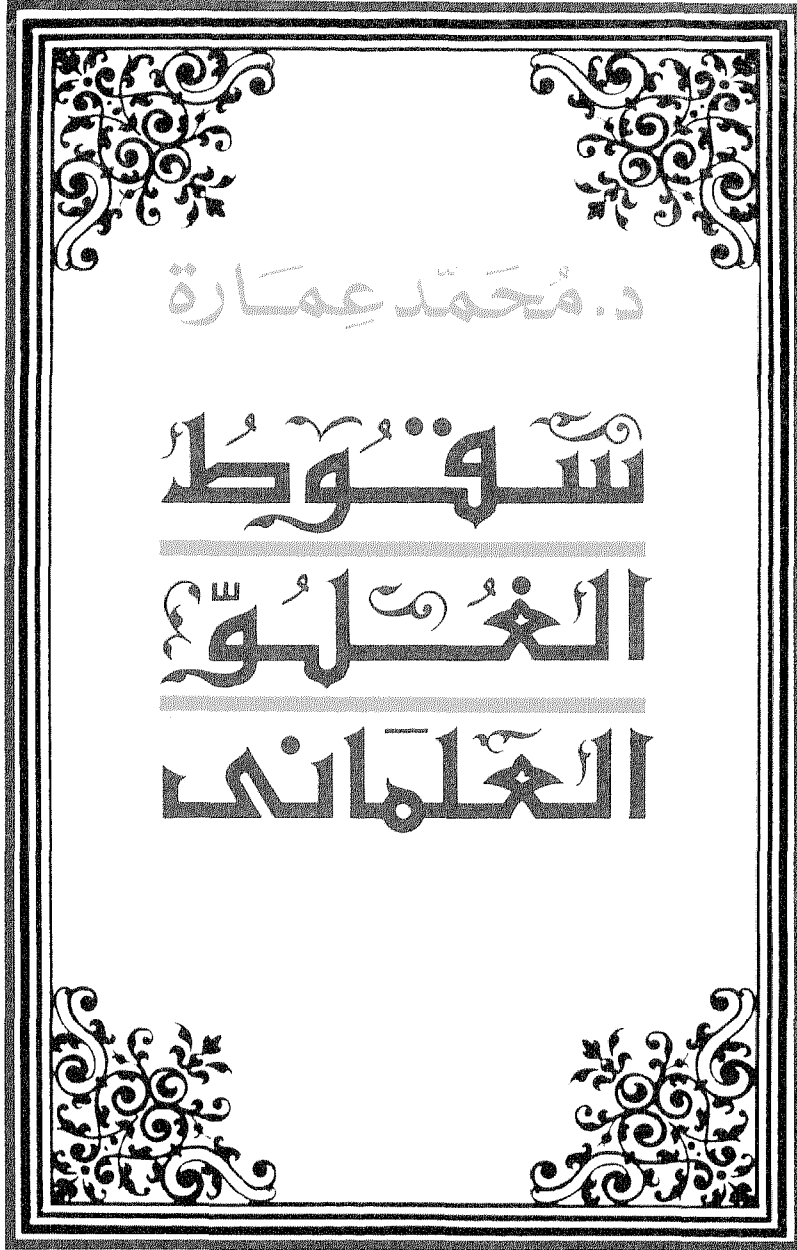 د. مُحَمَّد عِمَارة
سُقُوطُ
الغُلُوِّ
العَلمانى